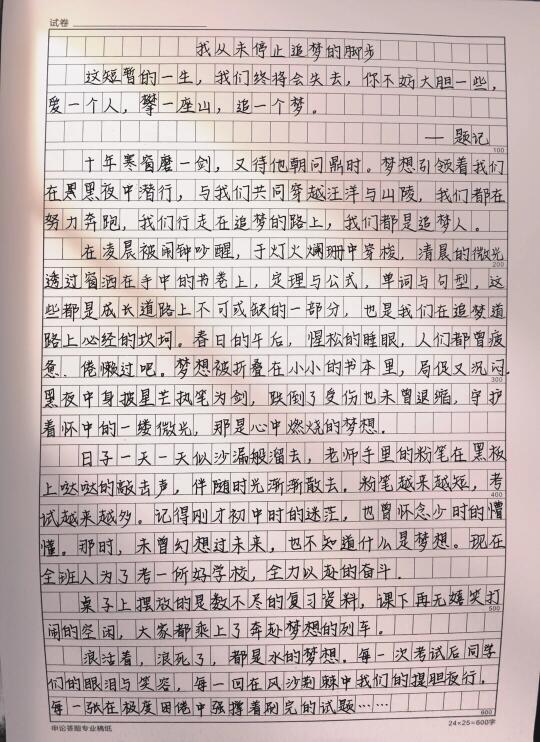 试卷
我从未停止追梦的脚步
这短暂的一生，我们终将会失去，你不妨大胆一些，
爱一个人，攀一座山，追一个梦。
— 题记
100
十年寒窗磨一剑，又待他朝问鼎时。梦想引领着我们
在黑黑夜中潜行，与我们共同穿越汪洋与山陵，我们都在
努力奔跑，我们行走在追梦的路上，我们都是追梦人。
在凌晨被闹钟吵醒，于灯火斓珊中穿梭，清晨的微光
200
透过窗洒在手中的书卷上，定理与公式，单词与句型，这
些都是成长道路上不可或缺的一部分，也是我们在追梦道
路上必经的坎坷。春日的午后，惺松的睡眼，人们都曾疲
惫、倦懒过吧。梦想被折叠在小小的书本里，局促又沉闷。
300
黑夜中身披星芒执笔为剑，跌倒了受伤也未曾退缩，守护
着怀中的一缕微光，那是心中燃烧的梦想。
日子一天一天似沙漏般溜去，老师手里的粉笔在黑板
上哒哒的敲击声，伴随时光渐渐散去。粉笔越来越短，考
400
试越来越多。记得刚才初中时的迷茫，也曾怀念少时的懵
懂。那时，未曾幻想过未来，也不知道什么是梦想。现在
全班人为了考一所好学校，全力以赴的奋斗．
桌子上摆放的是数不尽的复习资料，课下再无嬉笑打
500
闹的空闲，大家都乘上了奔赴梦想的列车。
浪活着，浪死了，都是水的梦想。每一次考试后同学
们的眼泪与笑容，每一回在风沙荆棘中我们的提胆夜行。
每一张在极度困倦中强撑着刷完的试题……
600
申论答题专业稿纸
24×25=600字